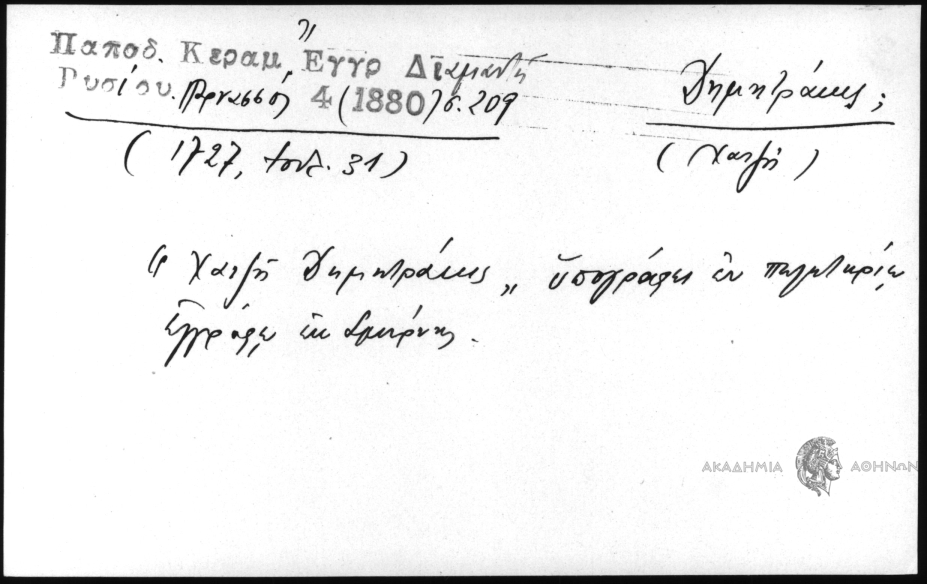 Παποδ. Κεραμ Ἔγγρ Διαμαντῆ
Ρυσίου. Παρνασσός 4 (1880) σ. 209
Δημητράκης;
(1727, Ἰουλ. 31)
(Χατζῆ)
"Χατζῆ Δημητράκης" ὑπογράφει ἐν πωλητηρίῳ
ἐγγράφῳ ἐκ Σμύρνης.
ΑΚΑΔΗΜΙΑ ΑΘΗΝΩΝ